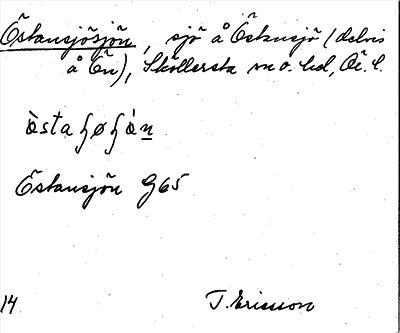 Östansjösjön, sjö å Östansjö (delvis
å Ön), Sköllersta sn o. hd, Ör. l.
ὰsta ʃøʃὰn
Östansjön G65
14 T. Ericsson